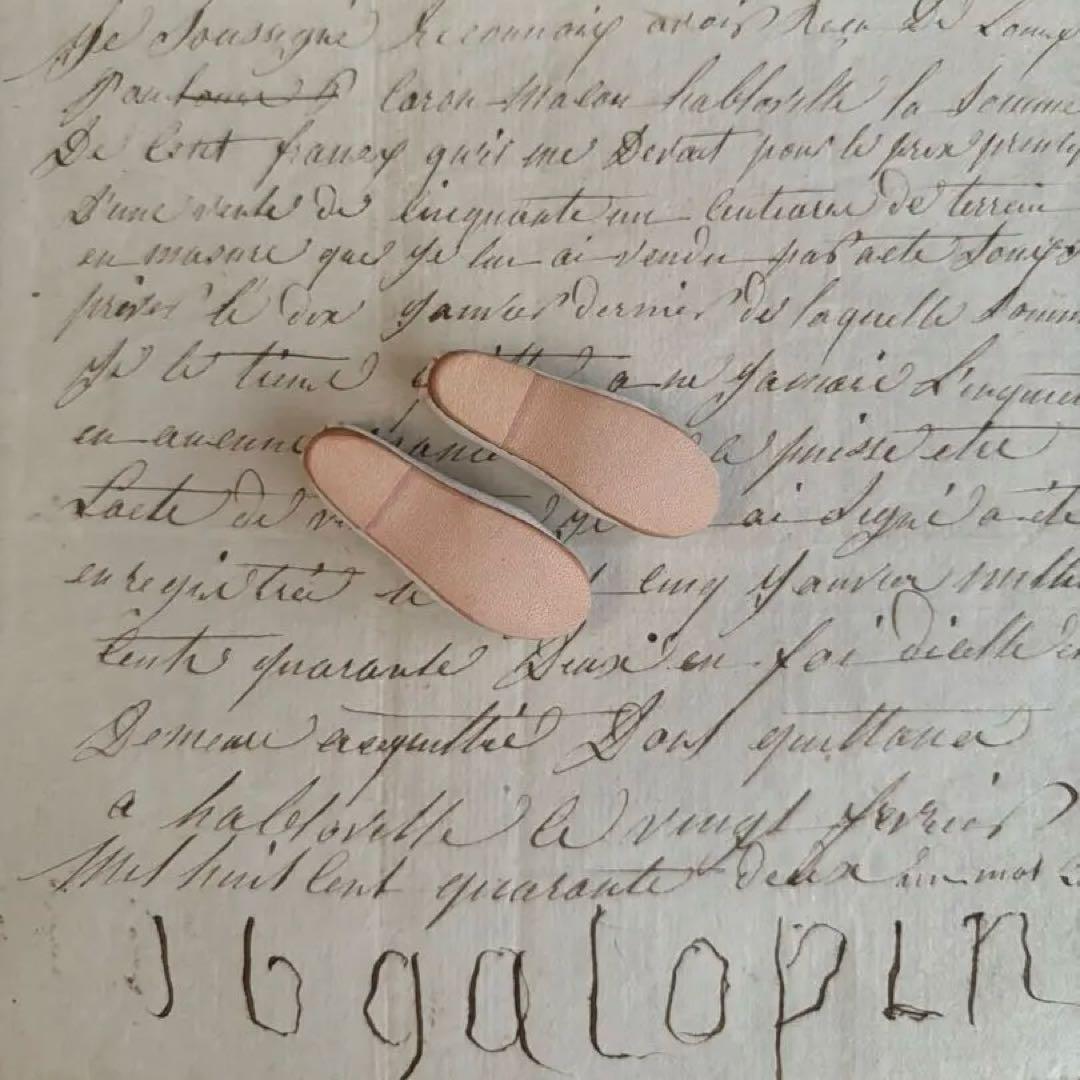 Je Soussigné Reconnais avoir Reçu De Louis
caron Malou habloville la Somme
De Cent francs qu'il me Devait pour le prix principal
D'une vente de cinquante un Centiares de terrein
en masure que Je lui ai vendu par acte Sous
privés le dix Janvier dernier de laquelle Somme
Je le tiens a ne Jamais L'inquieter
en aucune puisse etre
L'acte de ai Signé a été
enregistrée le cinq Janvier mille
Cents quarante Deux en foi dicelle
Demeure acquittée Dont quittance
a habloville le vingt fevrier
Mil huit Cent quarante deux un mot
J b galopin